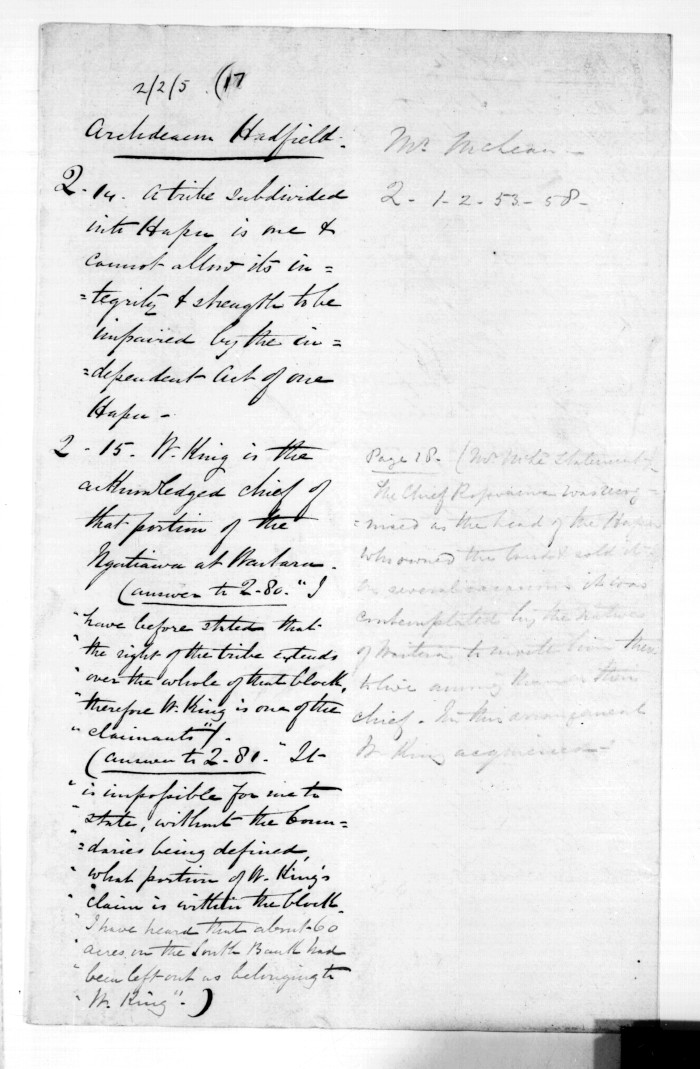 2/2/5 (17
Archdeacon Hadfield.
2 - 14. A tribe subdivided
into Hapu is one &
cannot allow its in=
=tegrity & strength to be
impaired by the in=
=dependent act of one
Hapu -
2 - 15. W. King is the
acknowledged chief of
that portion of the
Ngatiawa at
(answer to 2-80. "I
"have before stated that
"the right of the tribe extends
"over the whole of that block,
"therefore W. King is one of the
"claimants")
(answer to 2-81. "It
"is impossible for me to
"state, without the boun=
"=daries being defined,
"what portion of W. King's
"claim is within the block.
"I have heard that about 60
"acres on the South Bank had
"been left out as belonging to
"W. King".)
Mr. McLean -
2 - 1 - 2 - 53 - 58 -
Page 18. (Mr. McL's Statement).
The Chief was recog=
=nised as the head of the Hapu
who owned the land & sold it -
on several occasions it was
contemplated by the natives
of Waitara to invite him there
to live among them as their
chief. In this arrangement
W. King acquiesced -